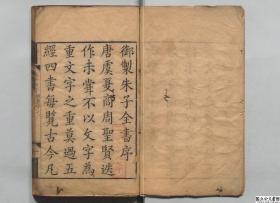 御製朱子全書序
唐虞夏商周聖賢迭
作未嘗不以文字為
重文字之重莫過五
經四書每覽古今凡